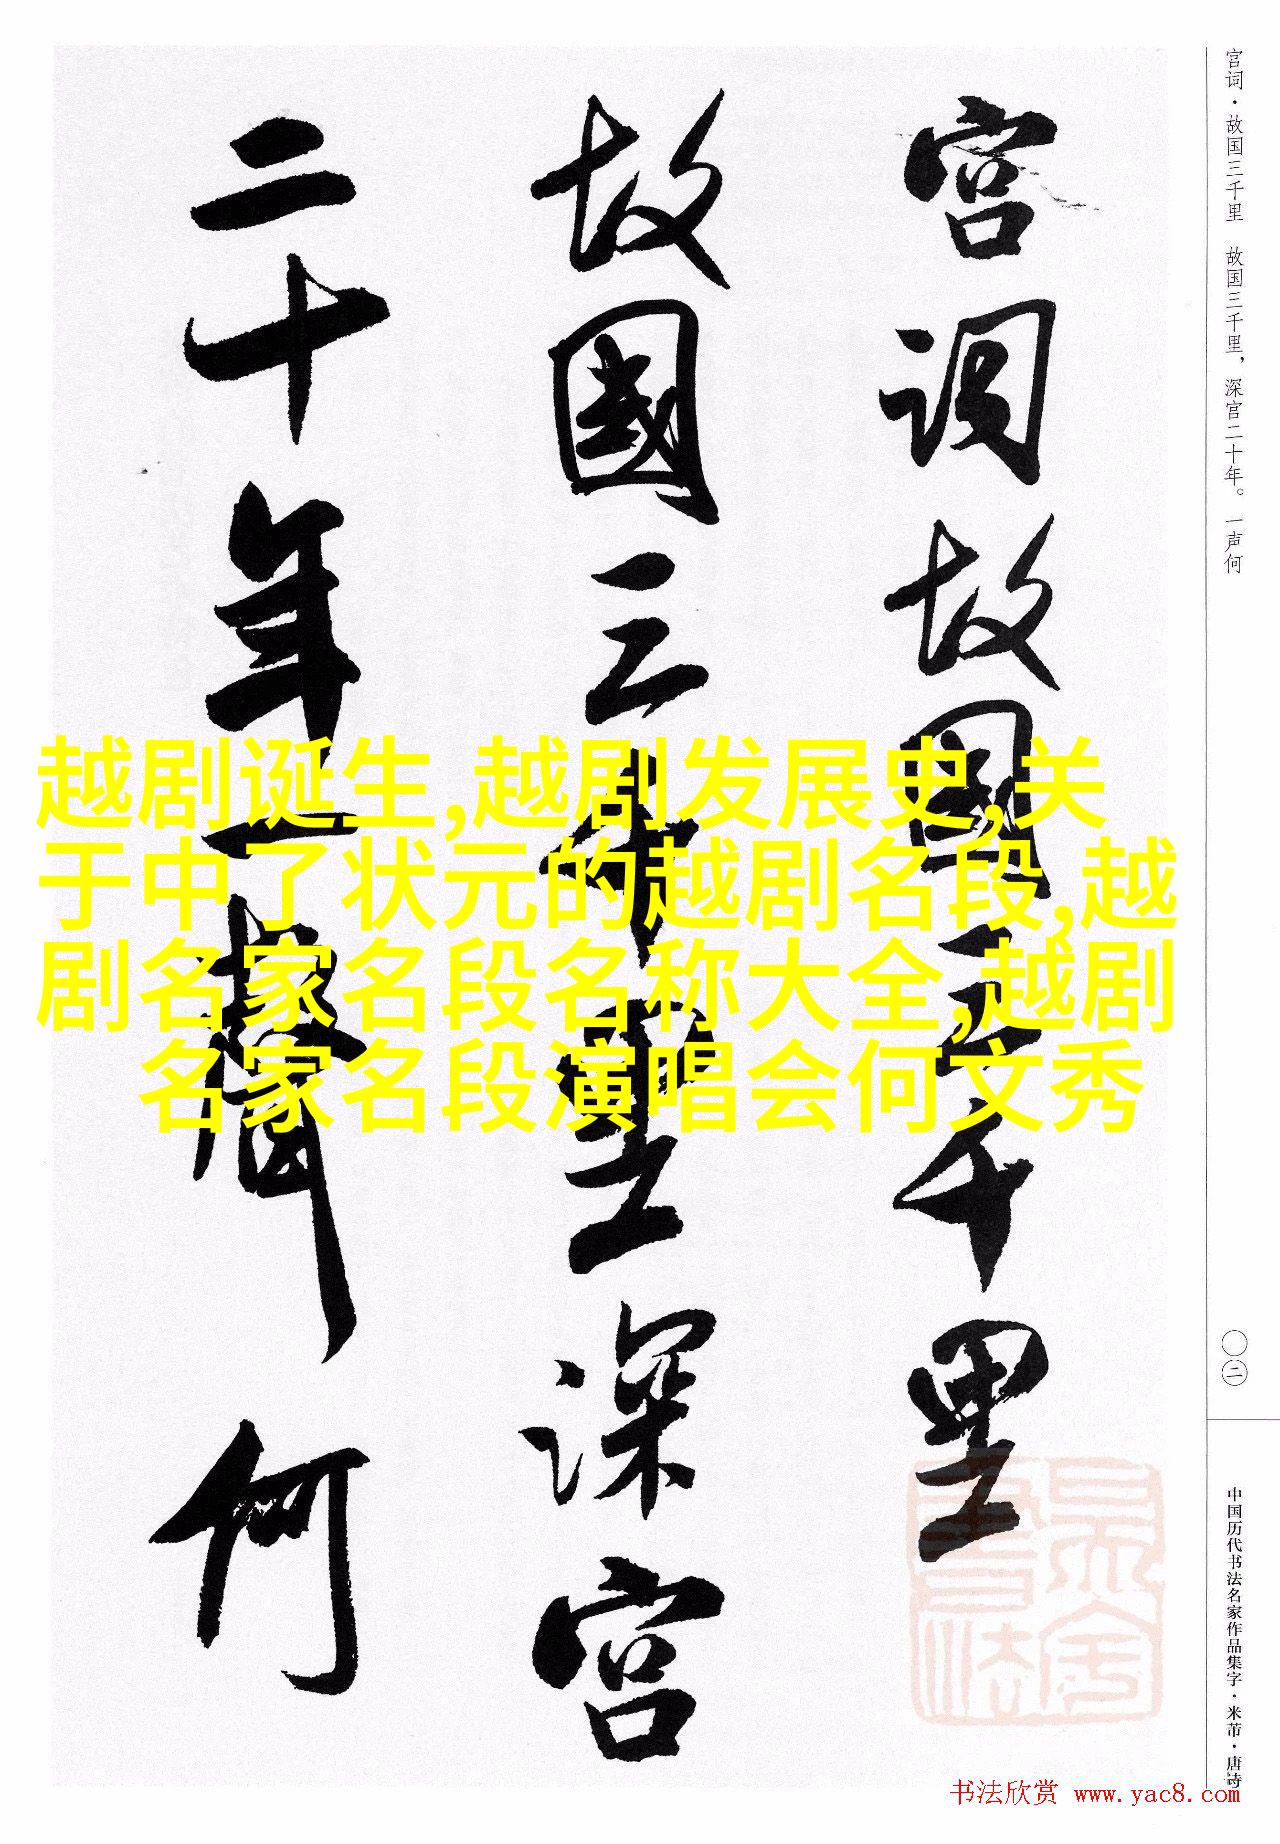 宫词·故国三千里 故国三千里，深宫二十年。一声何
宫词故國三千里
故國三千里深宫
二十年一聲何
越剧诞生,越剧发展史,关
于中了状元的越剧名段,越
剧名家名段名称大全,越剧
名家名段演唱会何文秀
〇二
中国历代书法名家作品集字·米芾·唐诗
书法欣赏 www.yac8.com